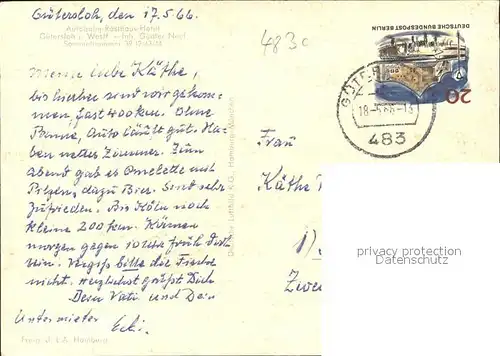 Gütersloh, den 17.5.66.
Autobahn-Rasthaus-Hotel
Gütersloh i. Westf. – Inh. Günter Noel
Meine liebe Käthe,
bis hierher sind wir gekom-
men, fast 400 km. Ohne
Panne, Auto läuft gut. Ha-
ben nettes Zimmer. Zum
Abend gab es Omelette mit
Pilzen, dazu Bier. Sind sehr
zufrieden. Bis Köln noch
kleine 200 km. Können
morgen gegen 10 Uhr früh dort
sein. Vergiß bitte die Fische
nicht. Herzlichst grüßt Dich
Dein Vati und Dein
Untermieter
483c
DEUTSCHE BUNDESPOST BERLIN
20
GÜTER
18-5.66-13
483
Frau
Käthe
privacy protection
Datenschutz